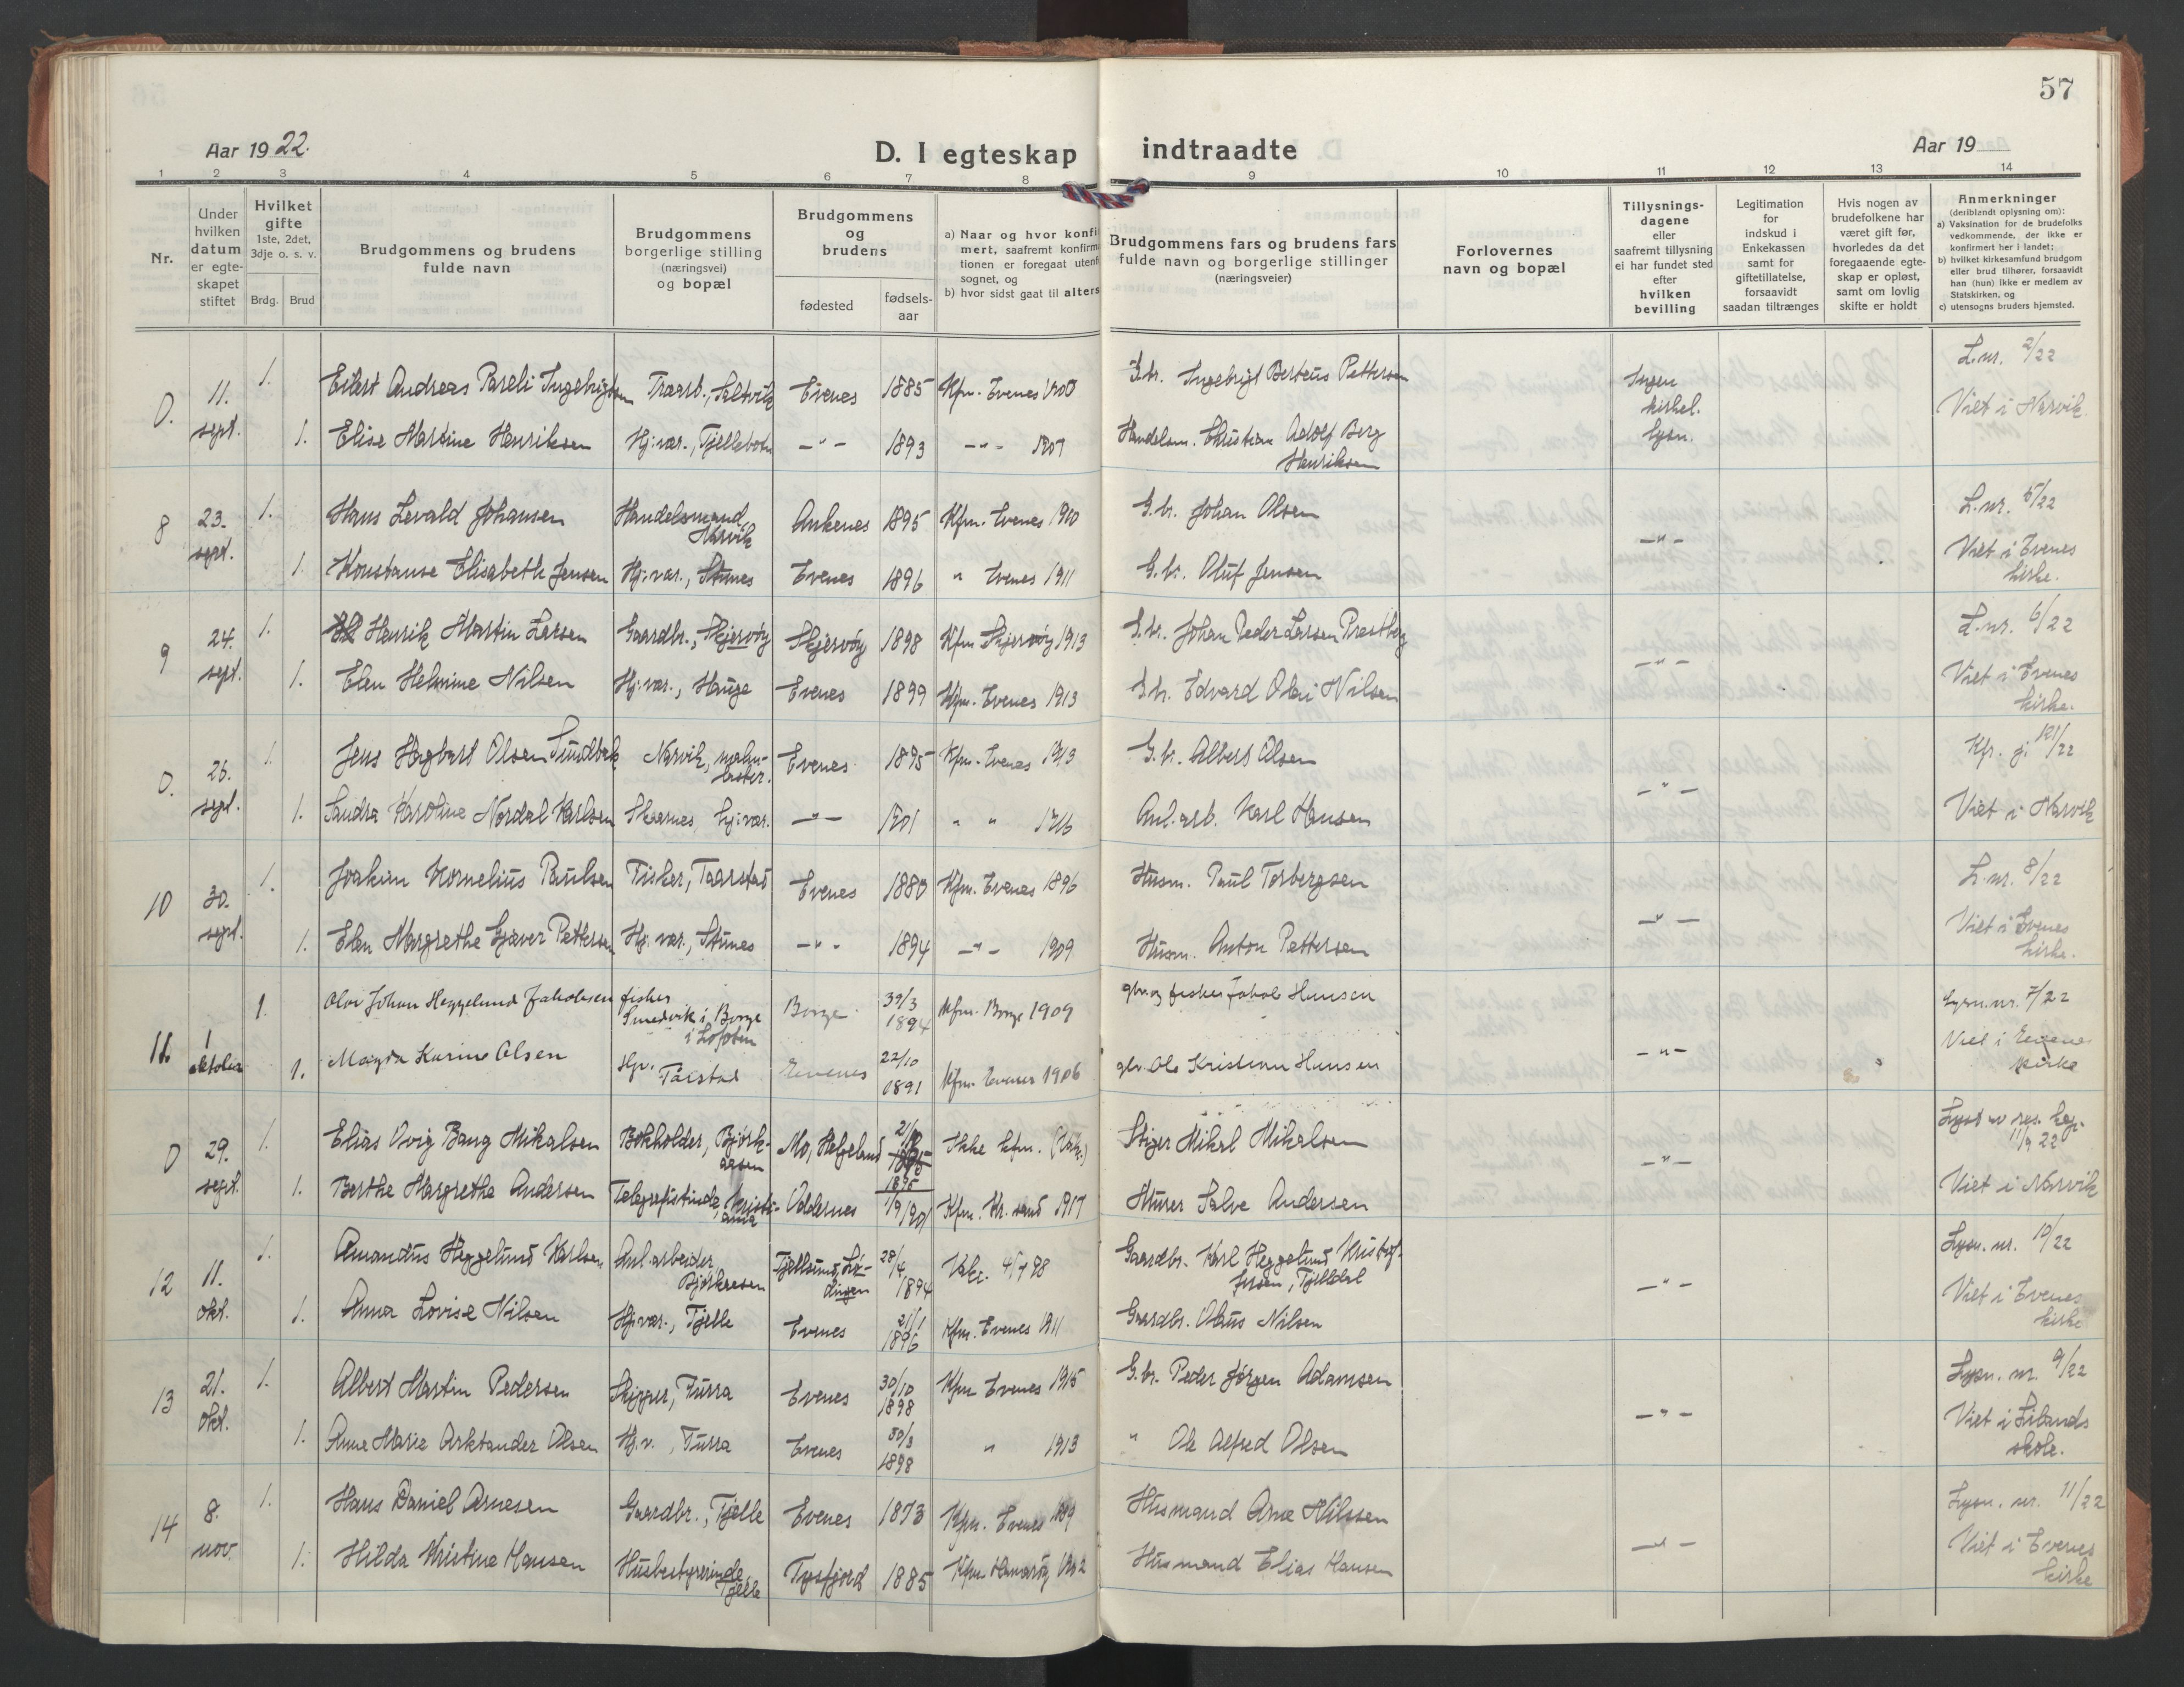 57
Aar 1922.
D. I egteskap indtraadte
Aar 19
1 2 3 4 5 6 7 8 9 10 11 12 13 14
Nr.
Under hvilken datum er egteskapet stiftet
Hvilket gifte
1ste, 2det, 3dje o. s. v.
Brdg. Brud
Brudgommens og brudens fulde navn
Brudgommens borgerlige stilling (næringsvei) og bopæl
Brudgommens og brudens
fødested
fødsels-aar
a) Naar og hvor konfi
mert, saafremt konfirm
tionen er foregaat utenf
sognet, og
b) hvor sidst gaat til alters
Brudgommens fars og brudens fars
fulde navn og borgerlige stillinger
(næringsveier)
Forlovernes
navn og bopæl
Tillysnings-
dagene
eller
saafremt tillysning
ei har fundet sted
efter
hvilken
bevilling
Legitimation
for
indskud i
Enkekassen
samt for
giftetillatelse,
forsaavidt
saadan tiltrænges
Hvis nogen av
brudefolkene har
været gift før,
hvorledes da det
foregaaende egte-
skap er opløst,
samt om lovlig
skifte er holdt
Anmerkninger
(deriblandt oplysning om):
a) Vaksination for de brudefolks
vedkommende, der ikke er
konfirmert her i landet;
b) hvilket kirkesamfund brudgom
eller brud tilhører, forsaavidt
han (hun) ikke er medlem av
Statskirken, og
c) utensogns bruders hjemsted.
0. 11. sept. 1. Eilert Andreas Pareli Ingebrigtsen Evenes 1885 Kfm. Evenes 1900 G.br. Ingebrigt Berteus Pettersen Ingen kirkel. lysn. L.nr. 2/22
1. Elise Martine Henriksen Hj:vær., Fjelleboten -"- 1893 -"- 1907 Handelsm. Christian Adolf Berg Henriksen Viet i Narvik
8 23. sept. 1. Hans Levald Johansen Handelsmand Narvik Ankenes 1895 Kfm. Evenes 1910 G.br. Johan Olsen -"- L.nr. 5/22
1. Konstanse Elisabeth Jensen Hj:vær., Stunes Evenes 1896 " Evenes 1911 G.br. Oluf Jensen Viet i Evenes kirke.
9 24. sept. 1. Henrik Martin Larsen Gaardbr., Skjervøy Skjervøy 1898 Kfm Skjervøy 1913 G.br. Johan Peder Larsen Prestberg -"- L.nr. 6/22
1. Elen Helmine Nilsen Hj:vær., Hauge Evenes 1899 Kfm. Evenes 1913 G.br. Edvard Olai Nilsen Viet i Evenes kirke.
0. 26. sept. 1. Jens Hagbart Olsen Sundbak Narvik, malmlaster. Evenes 1895 Kfm. Evenes 1913 G.br. Albert Olsen -"- 121/22
1. Sandra Karoline Nordal Karlsen Skarnes, hj:vær. -"- 1901 " " 1916 Anl.arb. Karl Hansen Viet i Narvik
10 30. sept. 1. Joakim Kornelius Paulsen Fisker, Taarstad Evenes 1880 Kfm. Evenes 1896 Husm. Paul Torbergsen -"- L.nr. 8/22
1. Elen Margrethe Gjæver Pettersen Hj:vær., Stunes -"- 1894 -"- 1909 Husm. Anton Pettersen Viet i Evenes kirke.
11. 1 oktober 1. Olav Johan Heggelund Jakobsen fisker Smedvik i Borge i Lofoten Borge 30/3 1894 Kfm. Borge 1909 gbr og fisker Jakob Hansen -"- Lysn.nr. 7/22
1. Magda Karine Olsen Hjv. Tårstad Evenes 22/10 1891 Kfm. Evenes 1906 gbr. Ole Kristian Hansen Viet i Evenes kirke
0 29. sept. 1. Elias Ovig Bang Mikalsen Bokholder, Bjørkaasen Mo, Helgeland 1895 Ikke kfm. Stiger Mikal Mikalsen -"- 11/9 22
1. Berthe Margrethe Andersen Telegrafistinde, Kristiania Oddernes 1/9 1901 Kfm. Kr.sand 1917 Murer Salve Andersen Viet i Narvik
12 11. okt. 1. Amandus Heggelund Karlsen Anl.arbeider Bjørkaasen Fjellsund, Lødingen 28/4 1894 Vakc. 4/7 98 Gaardbr. Karl Heggelund Kristoffersen, Fjelldal -"- Lysn. nr. 10/22
1. Anna Lovise Nilsen Hj:vær., Fjelle Evenes 21/1 1896 Kfm. Evenes 1911 Gaardbr. Olaus Nilsen Viet i Evenes kirke
13 21. okt. 1. Albert Martin Pedersen Skipper, Turra Evenes 30/10 1898 Kfm Evenes 1915 G.br. Peder Jørgen Adamsen -"- Lysn. nr. 9/22
1. Anne Marie Arktander Olsen Hj.v., Turra Evenes 30/3 1898 " 1913 " Ole Alfred Olsen Viet i Lilands skole.
14 8. nov. 1. Hans Daniel Arnesen Gaardbr., Fjelle Evenes 1873 Kfm. Evenes Husmand Arne Nilssen -"- Lysn. nr. 11/22
1. Hilda Kristine Hansen Husbestyrerinde, Fjelle Tysfjord 1885 Kfm Hamarøy 1902 Husmand Elias Hansen Viet i Evenes kirke